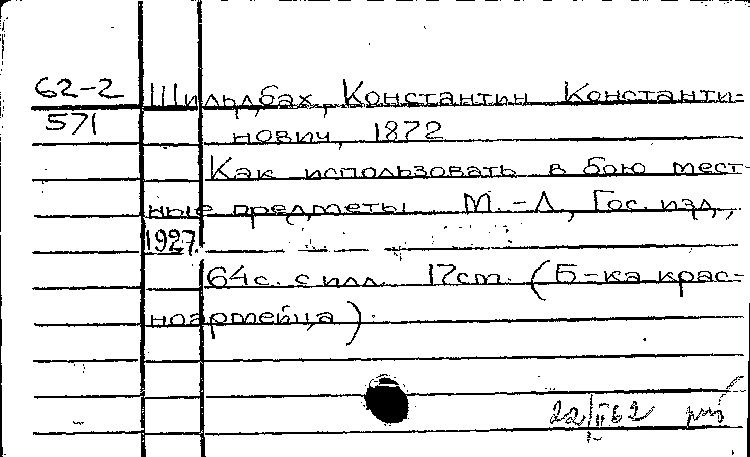 62-2 Шильдбах, Константин Константи-
571 нович, 1872
Как использовать в бою мест-
ные предметы М.-Л, Гос. изд.,
1927.
64с. с илл. 17см. (Б-ка крас-
ноармейца).
22/II 62